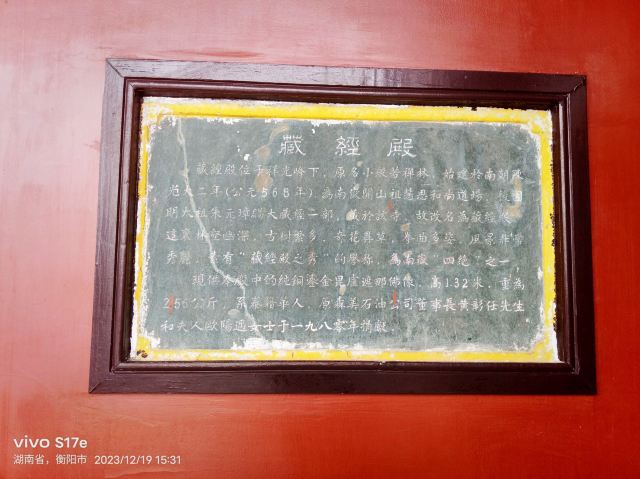 藏經殿
藏經殿位于祥光峰下，原名小般若禪林，始建於南朝陳
光大二年(公元568年)為南嶽開山祖慧思和尚道場，後因
明太祖朱元璋賜大藏經一部，藏於該寺，故改名為藏經殿。
這裏林壑幽深，古樹繁多，奇花異草，多曲多姿，風景非常
秀麗，素有“藏經殿之秀”的譽稱，為南嶽“四絕”之一。
現供奉殿中的純銅鎏金毘盧遮那佛像，高1.32米，重為
256公斤，系泰籍華人，原森美石油公司董事長黃彰任先生
和夫人歐陽通女士于一九八零年捐獻。
vivo S17e
湖南省，衡阳市 2023/12/19 15:31